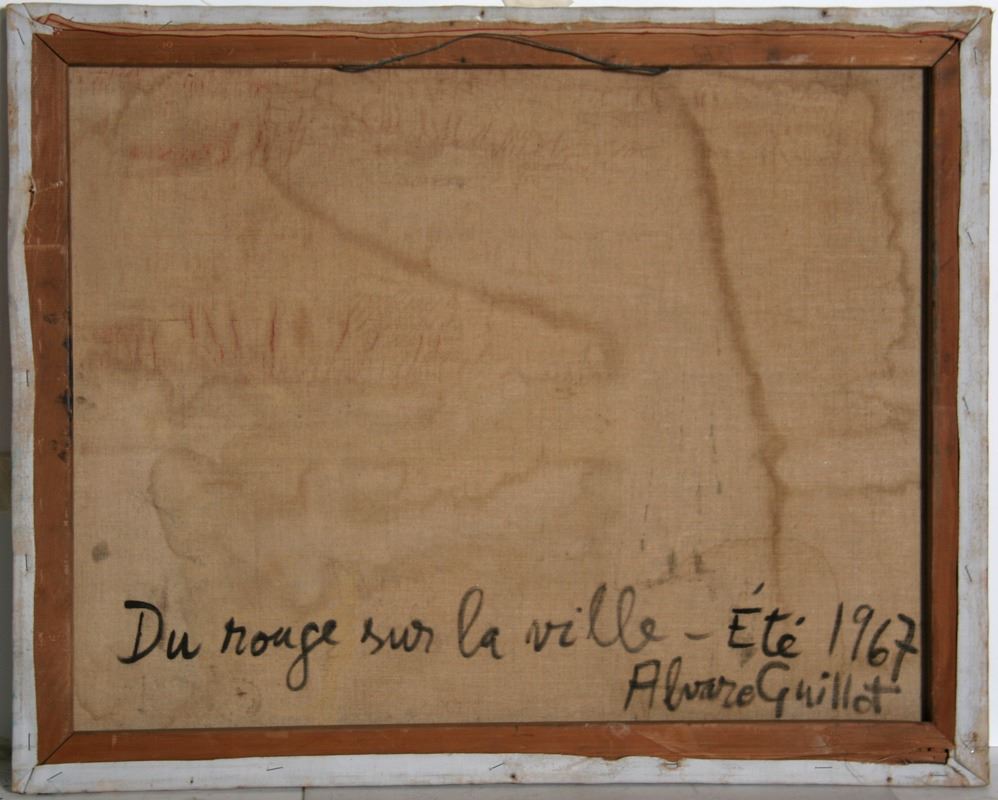 Du rouge sur la ville - Été 1967
Alvaro Guillot